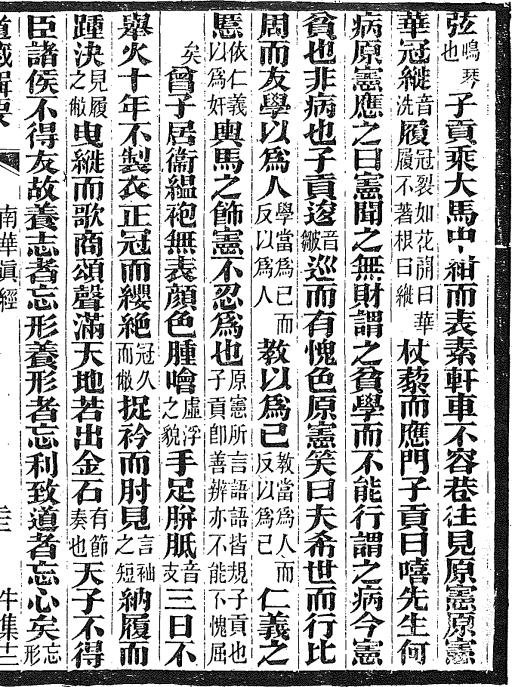 弦鳴琴也子貢乘大馬中紺而表素軒車不容巷往見原憲原憲
華冠縰音洗履冠裂如花開曰華履不著根曰縰杖藜而應門子貢曰嘻先生何
病原憲應之曰憲聞之無財謂之貧學而不能行謂之病今憲
貧也非病也子貢逡音皴巡而有愧色原憲笑曰夫希世而行比
周而友學以為人學當為己而反以為人教以為己教當為人而反以為己仁義之
慝依仁義以為奸輿馬之飾憲不忍為也原憲所言語語皆規子貢也子貢卽善辨亦不能不愧屈
矣曾子居衞縕袍無表顏色腫噲虛浮之貌手足胼胝音支三日不
舉火十年不製衣正冠而纓絶冠久而敝捉衿而肘見言袖之短納履而
踵決見履之敝曳縰而歌商頌聲滿天地若出金石有節奏也天子不得
臣諸侯不得友故養志者忘形養形者忘利致道者忘心矣忘形
道藏輯要 南華真經 牛集十二